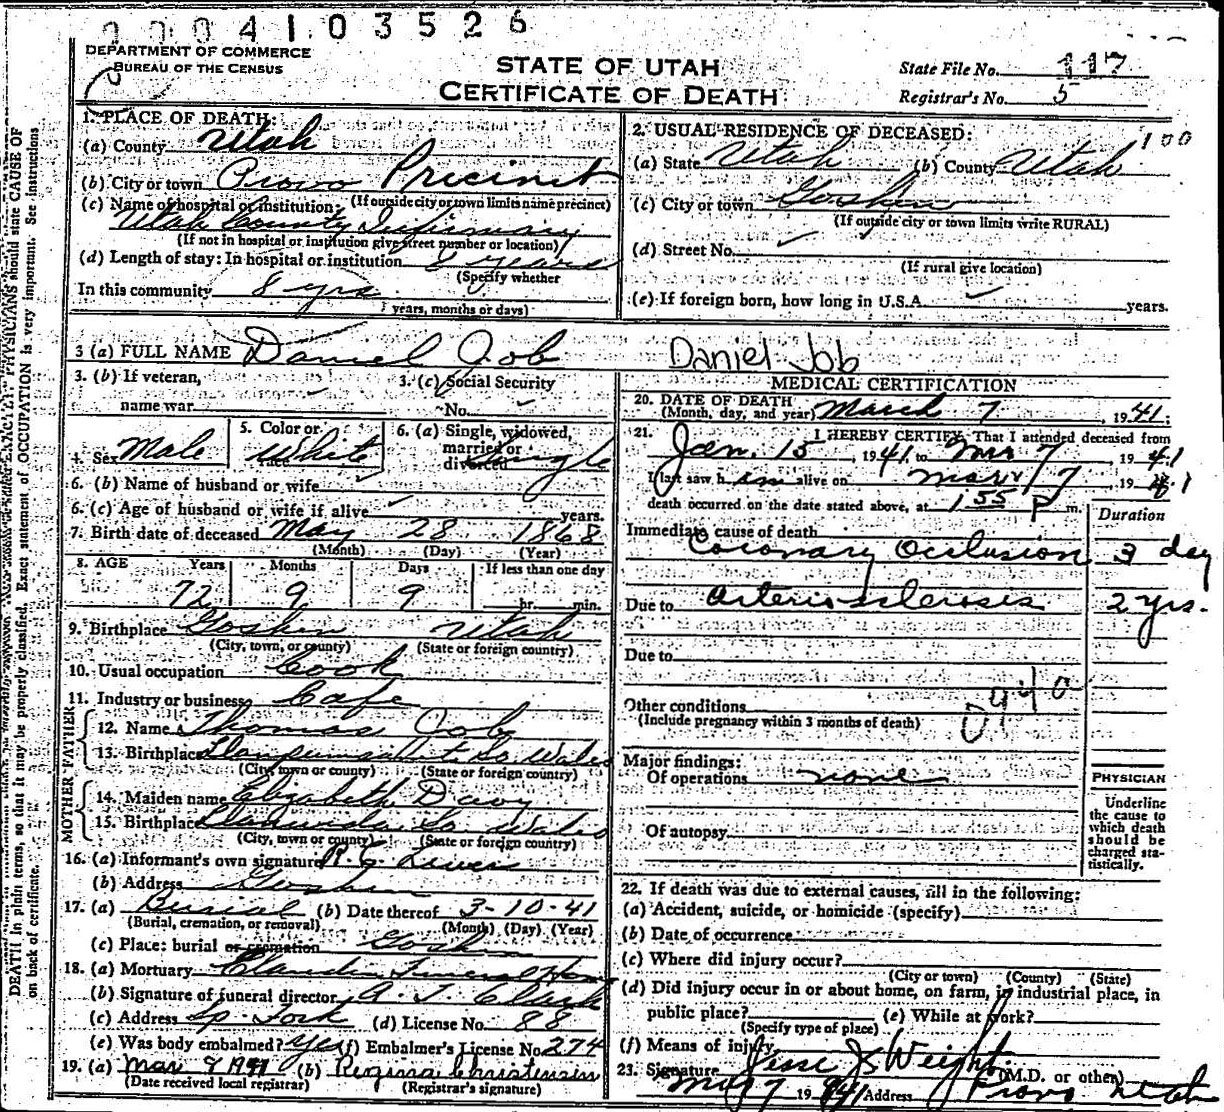 0004103526
DEPARTMENT OF COMMERCE
BUREAU OF THE CENSUS
STATE OF UTAH
CERTIFICATE OF DEATH
State File No. 117
Registrar's No. 5
1. PLACE OF DEATH:
(a) County Utah
(b) City or town Provo Precinct
(If outside city or town limits name precinct)
(c) Name of hospital or institution:
Utah County Infirmary
(If not in hospital or institution give street number or location)
(d) Length of stay: In hospital or institution 8 years
(Specify whether
In this community 8 yrs
years, months or days)
2. USUAL RESIDENCE OF DECEASED: 100
(a) State Utah (b) County Utah
(c) City or town Goshen
(If outside city or town limits write RURAL)
(d) Street No.
(If rural give location)
(e) If foreign born, how long in U.S.A. years.
3 (a) FULL NAME Daniel Job Daniel Job
3. (b) If veteran,
name war
3. (c) Social Security
No.
4. Sex Male
5. Color or race White
6. (a) Single, widowed, married or divorced Single
6. (b) Name of husband or wife
6. (c) Age of husband or wife if alive years.
7. Birth date of deceased May 28 1868
(Month) (Day) (Year)
8. AGE Years Months Days If less than one day
72 9 9 hr. min.
9. Birthplace Goshen Utah
(City, town, or county) (State or foreign country)
10. Usual occupation Cook
11. Industry or business Cafe
FATHER
12. Name Thomas Job
13. Birthplace So. Wales
(City, town or county) (State or foreign country)
MOTHER
14. Maiden name Elizabeth Davy
15. Birthplace So. Wales
(City, town or county) (State or foreign country)
16. (a) Informant's own signature
(b) Address Goshen
17. (a) Burial (b) Date thereof 3-10-41
(Burial, cremation, or removal) (Month) (Day) (Year)
(c) Place: burial or cremation Goshen
18. (a) Mortuary Claudin Funeral Home
(b) Signature of funeral director A. T. Clark
(c) Address Sp. Fork (d) License No. 88
(e) Was body embalmed? yes (f) Embalmer's License No. 274
19. (a) Mar 9 1941 (b) Regina Christensen
(Date received local registrar) (Registrar's signature)
MEDICAL CERTIFICATION
20. DATE OF DEATH
(Month, day, and year) March 7, 1941;
21. I HEREBY CERTIFY That I attended deceased from
Jan. 15, 1941 to Mar 7 1941
I last saw him alive on Mar 7 1941
death occurred on the date stated above, at 1 55 P m.
Duration
Immediate cause of death
Coronary Occlusion 3 day
Due to arteriosclerosis 2 yrs.
Due to
Other conditions
(Include pregnancy within 3 months of death)
094a
Major findings:
Of operations none
Of autopsy
PHYSICIAN
Underline
the cause to
which death
should be
charged sta-
tistically.
22. If death was due to external causes, fill in the following:
(a) Accident, suicide, or homicide (specify)
(b) Date of occurrence
(c) Where did injury occur?
(City or town) (County) (State)
(d) Did injury occur in or about home, on farm, in industrial place, in
public place? (e) While at work?
(Specify type of place)
(f) Means of injury
23. Signature Jesse J Weight (M.D. or other)
Mar 7 1941 Address Provo Utah
DEATH in plain terms, so that it may be properly classified. Exact statement of OCCUPATION is very important. See instructions
on back of certificate.